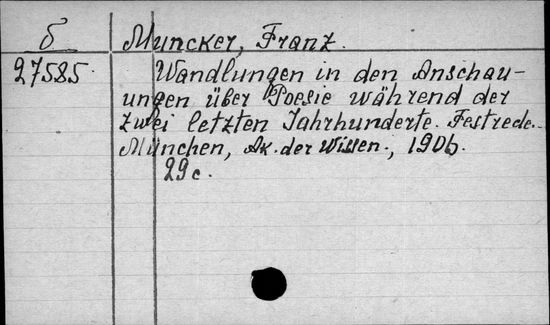 б Muncker, Franz.
27585. Wandlungen in den Anschau-
ungen über Poesie während der
zwei letzten Jahrhunderte. Festrede.
München, Ak. der Wissen., 1906.
29c.